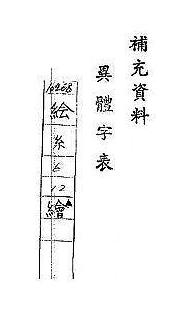 補充資料
異體字表
絵
糸
6
12
繪▲